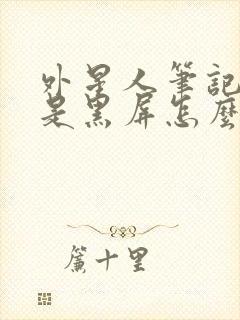 外星人筆記
是黑屏怎麼
簾十里